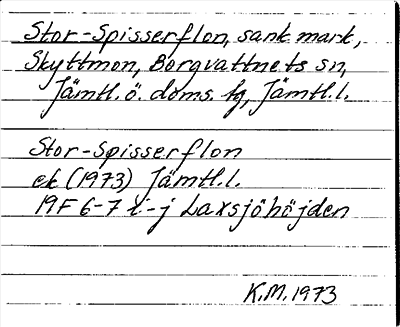 Stor-Spisserflon, sank mark,
Skyttmon, Borgvattnets sn,
Jämtl.ö. doms. tg, Jämtl.l.
Stor-Spisserflon
ek (1973) Jämtl.l.
19F 6-7 i-j Laxsjöhöjden
K.M. 1973